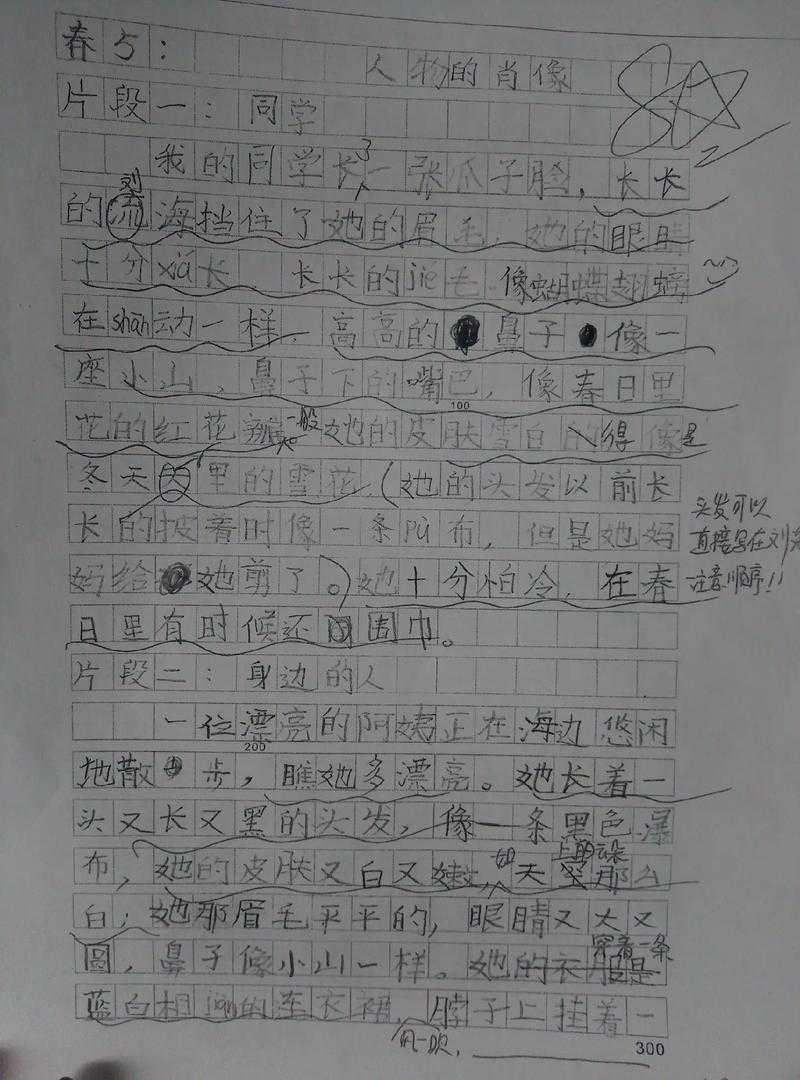 春5：
人物的肖像
片段一：同学
我的同学长了一张瓜子脸，长长
的流海挡住了她的眉毛，她的眼睛
刘
十分xiá长，长长的jié毛像蝴蝶翅膀
在shǎn动一样，高高的鼻子像一
座小山，鼻子下的嘴巴，像春日里
100
花的红花瓣一般她的皮肤雪白的得像是
冬天里的雪花，（她的头发以前长
长的披着时像一条pù布，但是她妈
妈给她剪了。）她十分怕冷，在春
日里有时候还围围巾。
头发可以
直接写在刘海
注意顺序!!
片段二：身边的人
一位漂亮的阿姨正在海边悠闲
200
地散步，瞧她多漂亮。她长着一
头又长又黑的头发，像一条黑色瀑
布，她的皮肤又白又嫩如天空那么
上的云朵
白，她那眉毛平平的，眼睛又大又
圆，鼻子像小山一样。她的衣服是
穿着一条
蓝白相jiàn的连衣裙，脖子上挂着一
风一吹，
300